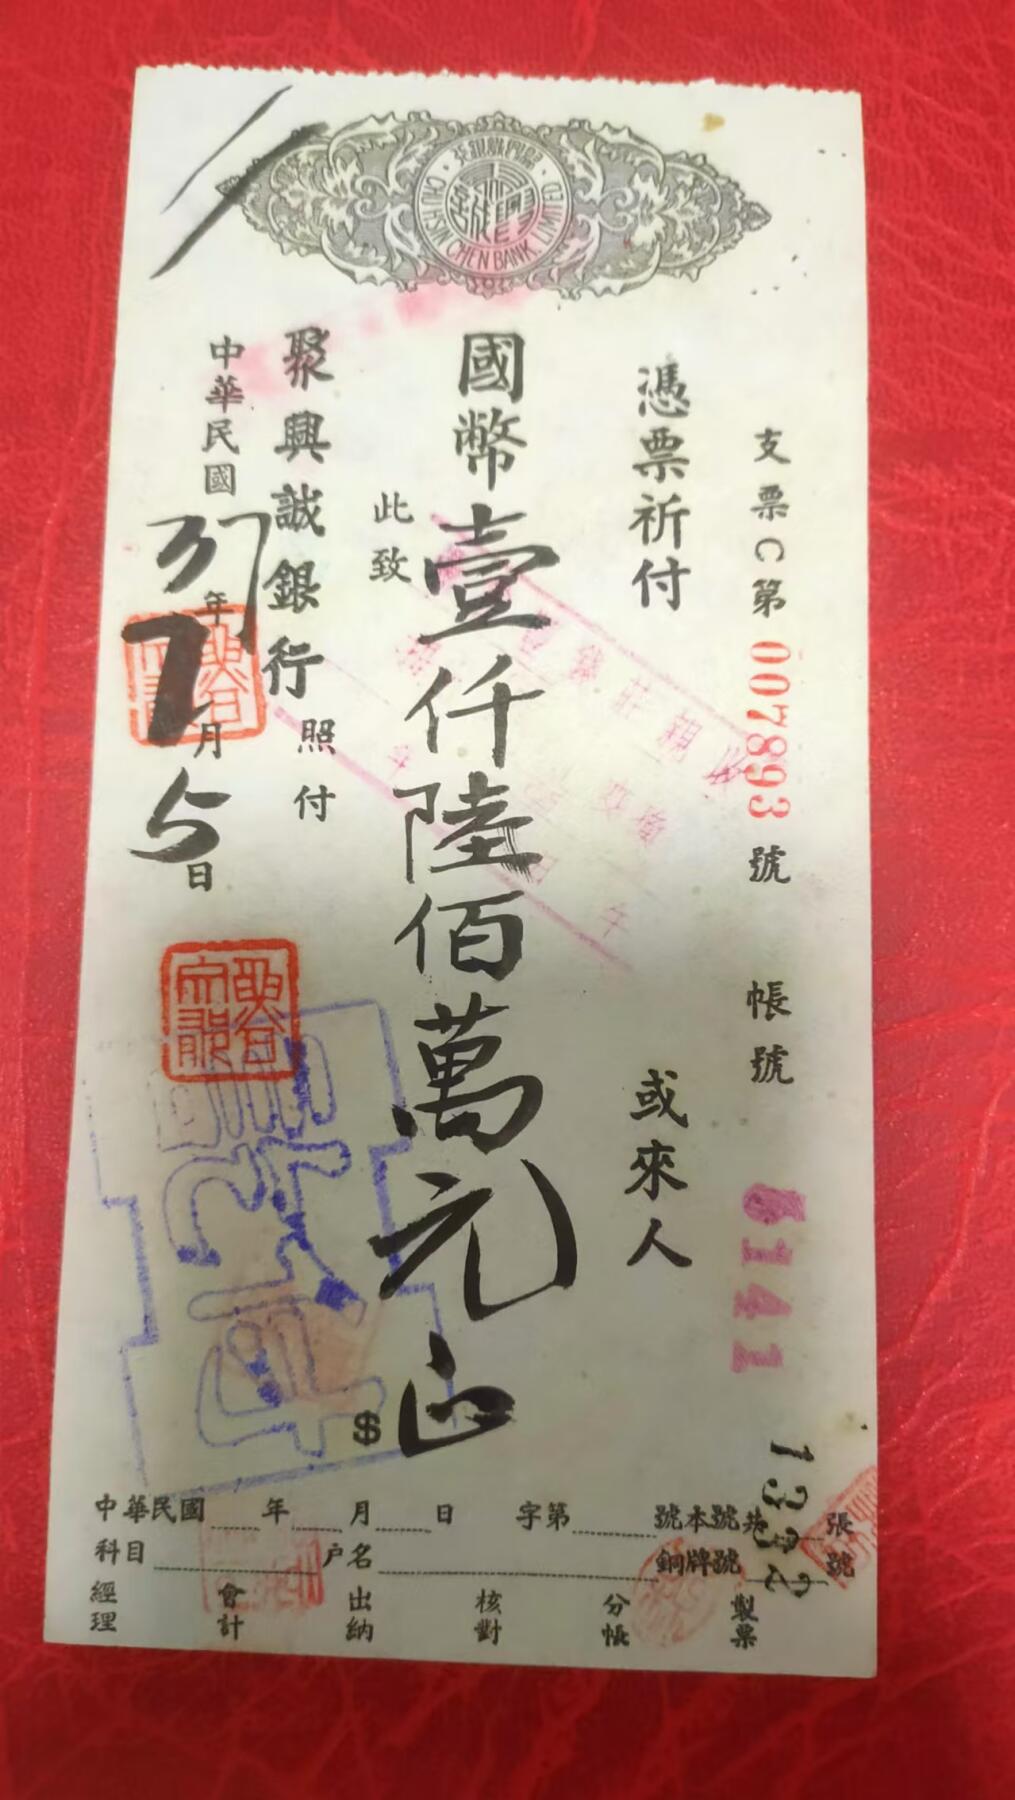 聚興誠銀行
CHU HSIN CHEN BANK. LIMITED
支票C第007893號 帳號 5141
憑票祈付 或來人
國幣壹仟陸佰萬元正
$
此致
聚興誠銀行照付
中華民國37年7月5日
1332
中華民國 年 月 日 字第 號本號共 張
科目 戶名 銅牌號 號
經理 會計 出納 核對 分帳 製票